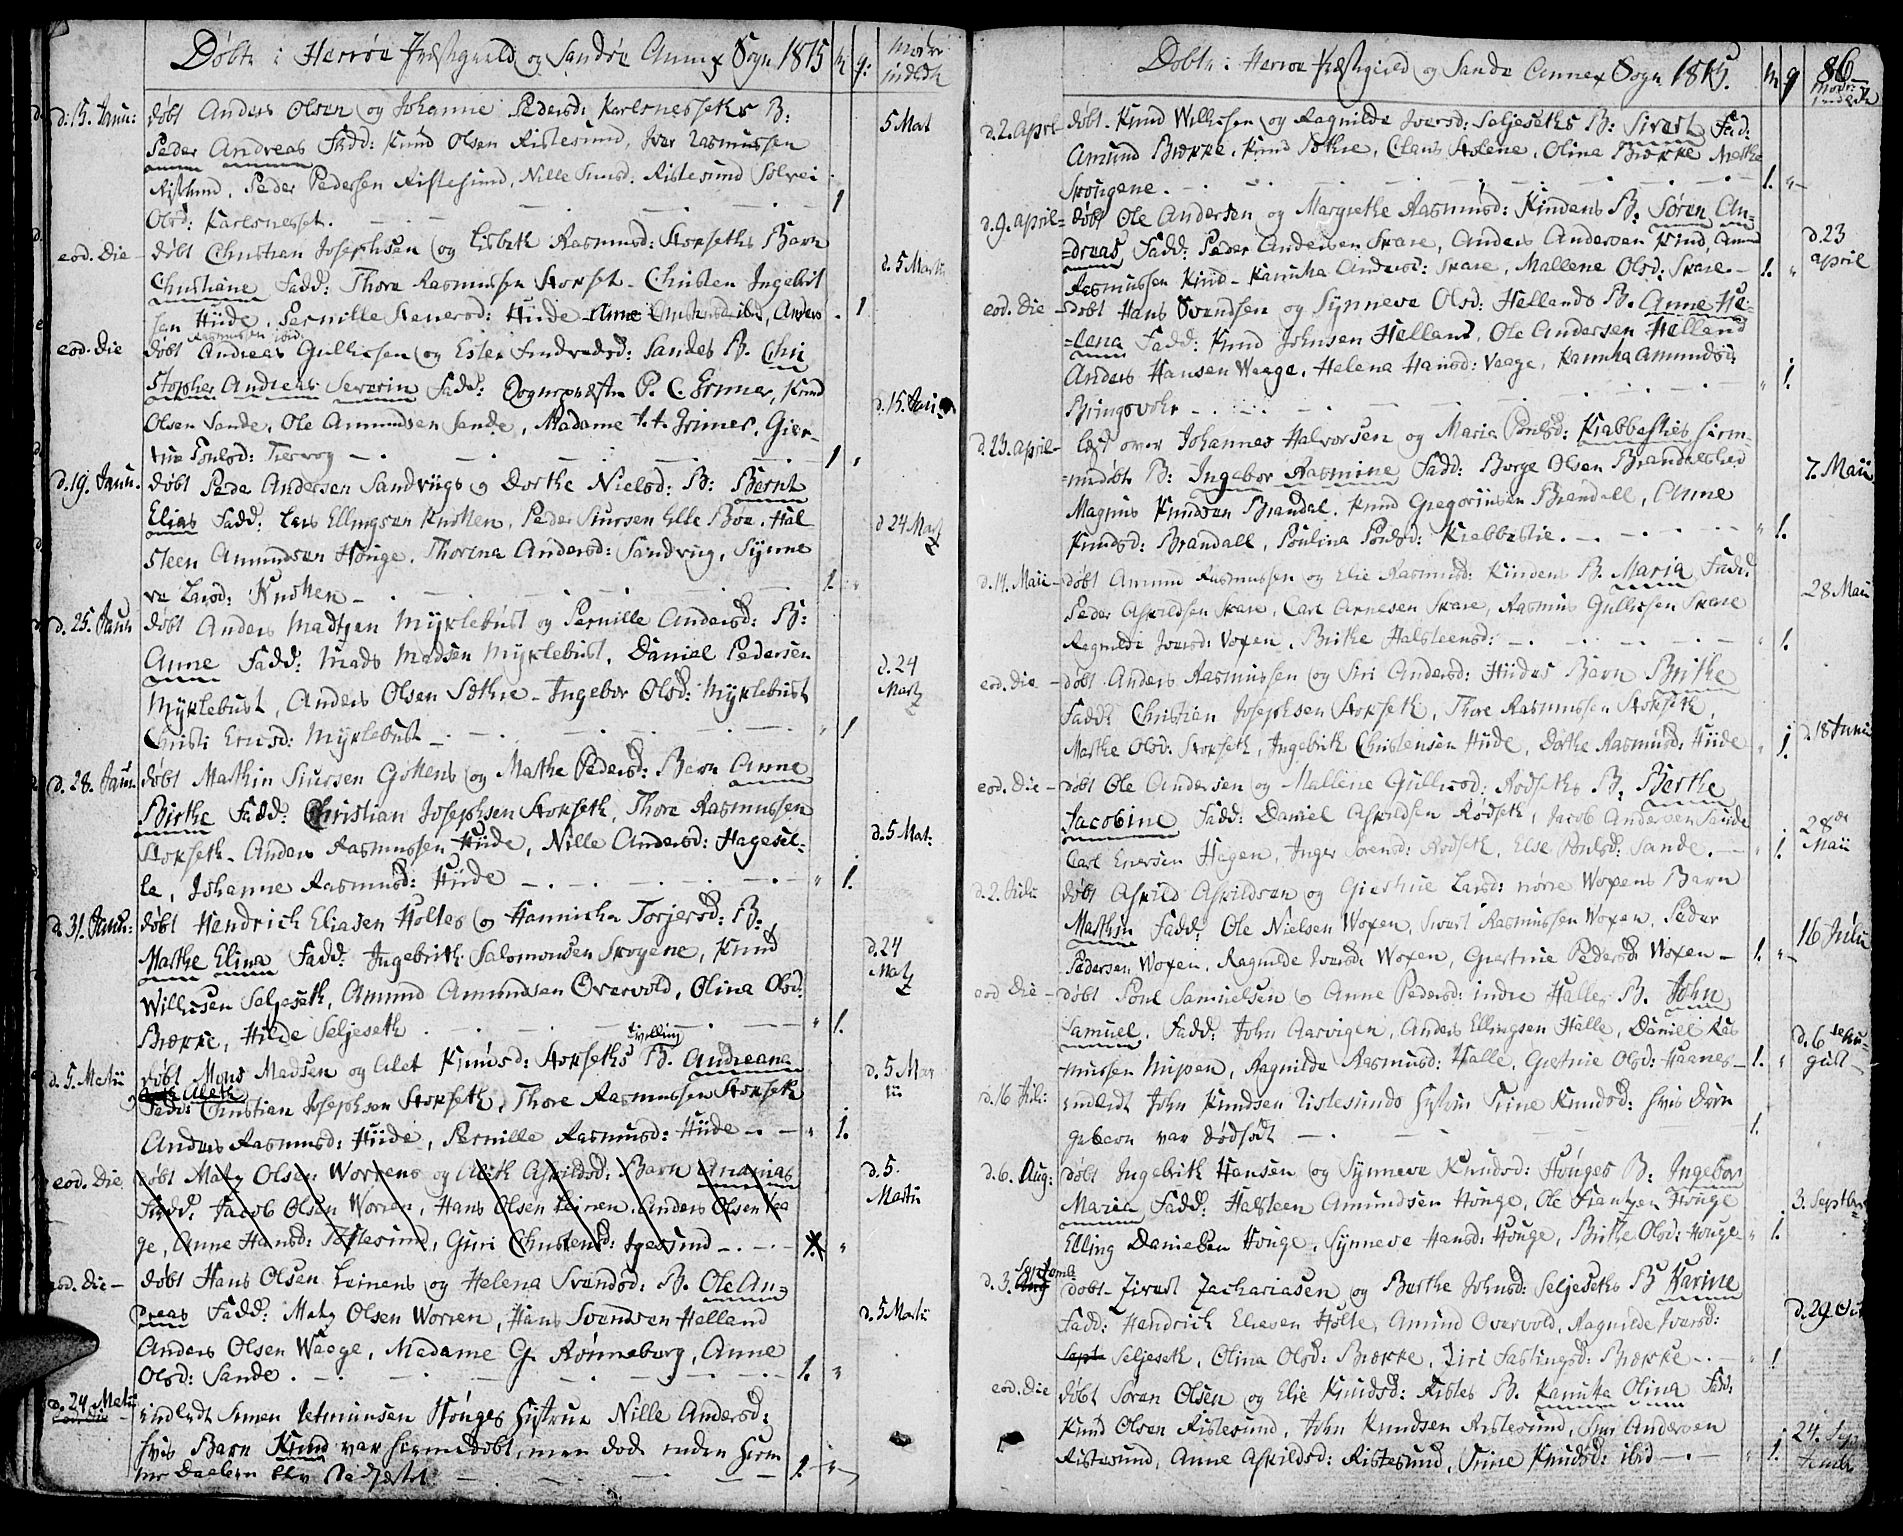 Døbte i Herröe Præstegield og Sandöe Annex Sogn 1815 m q: Moder indledte
d: 15. Janu: døbt Anders Olsen og Johanne Pedersd: Karlsnessets B: 5 Mart
Peder Andreas Fadd: Knud Olsen Ristesund, Iver Rasmussen
Ristesund, Peder Pedersen Ristesund, Nille Ristesund Solvei
Olsd: Karlsnesset. 1
eod. Die døbt Christian Josephsen og Lisbeth Rasmusd: Storseths Barn d. 5 Martii
Christiane Fadd: Thore Rasmussen Storset. Christen Ingebrit
sen Hiide, Pernille Hiide Anne Christensd ibid, Anders 1
Rasmussen ibid.
eod. Die døbt Andreas Gullicsen og Ester Sandes B. Chri
stopher Andreas Severin Fadd: Sogneprästen P. C. Grimer, Knud d. 15. Janu
Olsen Sande, Ole Amundsen Sande, Madame Grimer, Gier-
true Poulsd: Tiervog 1
d. 19. Janu. døbt Peder Andersen Sandvigs og Dorthe Nielsd: B: Bernt
Elias Fadd: Lars Ellingsen Knotten, Peder Siursen Elle Böe, Hal d 24 Martz
steen Amundsen Houge, Thorena Andersd: Sandvig, Synne
ve Larsd: Knotten 1.
d. 25. Janu døbt Anders Madtzen Myklebust og Pernille Andersd: B:
Anne Fadd: Mads Madsen Myklebust, Daniel Pedersen d. 24
Myklebust, Anders Olsen Sothre Ingebor Olsd: Myklebust Martz
Christi Ericsd: Myklebust 1
d. 28. Janu døbt Mathin Siursen Gottens og Mathe Pedersd: Barn Anne
Birthe Fadd: Christian Josephsen Storseth, Thore Rasmussen
Storseth. Anders Rasmussen Hiide, Nille Andersd: Hagesel- d. 5 Mart:
le, Johanne Rasmusd: Hiide 1.
d. 31. Janu: døbt Hendrich Eliasen Holtes og Hannicha Torjersd: B.
Mathe Elina Fadd: Ingebrith Salomonsen Skogene, Knud d. 24
Willicsen Seljeseth, Amund Amundsen Overvold, Olina Olsd: Martz
Brøkke, Hilde Seljeseth 1.
tvilling
d. 5. Martii døbt Mons Madsen og Alet Knudsd: Storseths B. Andreana d. 5 Mar
Aleth tii
Fadd: Christian Josephsen Storseth, Thore Rasmussen Storseth
Anders Rasmusd: Hiide, Pernille Rasmusd: Hiide 1.
eod. Die døbt Matz Olsen Worrens og Aleth Askildsd: Barn Ananias d. 5.
Fadd: Jacob Olsen Worren, Hans Olsen Leinen, Anders Olsen Vaa Martii
ge, Anne Hansd: Torlesund, Guri Christensd: Igesund
eod. Die døbt Hans Olsen Leinens og Helena Svendsd: B. Ole An-
dreas Fadd: Matz Olsen Worren, Hans Svendsen Helland d. 5 Martii
Anders Olsen Waage, Madame G. Rönneburg, Anne
Olsd: Sande. 1.
d. 24 Martii indledt Simen Houges Hustrue Nille Andersd:
hvis Barn Knud var hjemmedøbt, men døde inden Hiem
me Daaben blev stadfæstet 1.

Dobte i Herroe Præstegield og Sande Annex Sogn 1815. m q 86 Moder indledte
d. 2. April døbt Knud Willicsen og Ragnilde Iversd: Seljeseths B: Sivert Fad:
Amund Brøkke, Knud Sothre, Claus Stolene, Olina Brøkke Merthe
Skougene. 1.
d. 9. April døbt Ole Andersen og Margrethe Rasmusd: Kindens B. Søren An- d. 23
dreas Fadd: Peder Andersen Skare, Anders Andersen Kind, Amund April
Rasmussen Kind, Karinha Andersd: Skare, Mallene Olsd: Skare. 1.
eod. Die døbt Hans Svendsen og Synneve Olsd: Hellands B. Anne He-
lena Fadd: Knud Johnsen Helland, Ole Andersen Helland
Anders Hansen Waage, Helena Hansd: Vaage, Karinha Amundsd: 1.
Bringsvohr
d. 23. April last over Johannes Halvorsen og Maria Poulsd: Krabbesties hiem-
medøbt B: Ingebor Rasmine Fadd: Borge Olsen Brandalshed 7. Maii
Magnus Knudsen Brandal, Knud Gregoriusen Brandall, Anne
Knudsd: Brandall, Poulina Poulsd: Krabbestie. 1.
d. 14. Maii døbt Amund Rasmussen og Elie Rasmusd: Kindens B. Maria Fadd: 28 Maii
Peder Askildsen Skare, Carl Arnesen Skare, Rasmus Gullicsen Skare
Ragnilde Iversd: Voxen, Brithe Halsteensd: 1.
eod. Die døbt Anders Rasmussen og Siri Andersd: Hiides Barn Brithe
Fadd: Christian Josephsen Storseth, Thore Rasmussen Storseth,
Mathe Olsd: Storseth, Ingebrith Christensen Hiide, Dorthe Rasmusd: Hiide 1. d. 18 Junii
eod. Die døbt Ole Andersen og Mallene Gullicsd: Rodseths B: Berthe
Jacobine Fadd: Daniel Askildsen Rødseth, Jacob Andersen Sande 28de
Carl Eversen Hagen, Inger Sorensd: Rodseth, Else Poulsd: Sande. 1. Maii
d. 2. Julii døbt Askild Askildsen og Giertrue Larsd: nørre Woxens Barn
Mathin Fadd: Ole Nielsen Woxen, Sivert Rasmussen Woxen, Peder 16 Julii
Pedersen Woxen, Ragnilde Iversd: Woxen, Giertrue Pedersd: Woxen 1.
eod. Die døbt Poul Samuelsen og Anne Pedersd: indre Halles B. John
Samuel. Fadd: John Aarvigen, Anders Ellingsen Halle, Daniel Ras d. 6te Au-
mussen Mirven, Ragnilde Rasmusd: Halle, Giertrue Olsd: Haanes 1. gust
d. 16 Juli: indledt John Knudsen Ristesunds Hustru Siine Knudsd: hvis Dren
gebarn var dødfødt 1.
d. 6. Aug: døbt Ingebrith Hansen og Synneve Knudsd: Houges B: Ingebor
Maria Fadd: Halsteen Amundsen Houge, Ole Frantzen Houge 3. Septbr
Elling Danielsen Houge, Synneve Hansd: Houge, Brithe Olsd: Houge 1.
Septemb.
d. 3. Aug døbt Sivert Zachariasen og Berthe Johnsd: Seljeseths B Karine
Fadd: Hendrich Eliasen Holte, Amund Overvold, Ragnilde Iversd: d. 29 Oct
Sept Seljeseth, Olina Olsd: Brøkke, Siri Brøkke. 1
eod. Die døbt Søren Olsen og Elie Knudsd: Ristes B. Karinha Olina Fadd:
Knud Olsen Ristesund, John Knudsen Ristesund, Andersen 24. Sep
Ristesund, Anne Askildsd: Ristesund, Siine Knudsd: ibid 1. temb